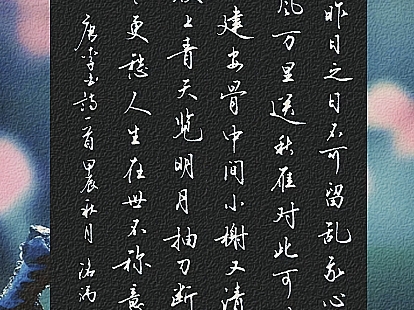 昨日之日不可留乱我心
风万里送秋雁对此可
建安骨中间小榭又清
上青天览明月抽刀断
更愁人生在世不称意
唐李白诗一首甲辰秋月